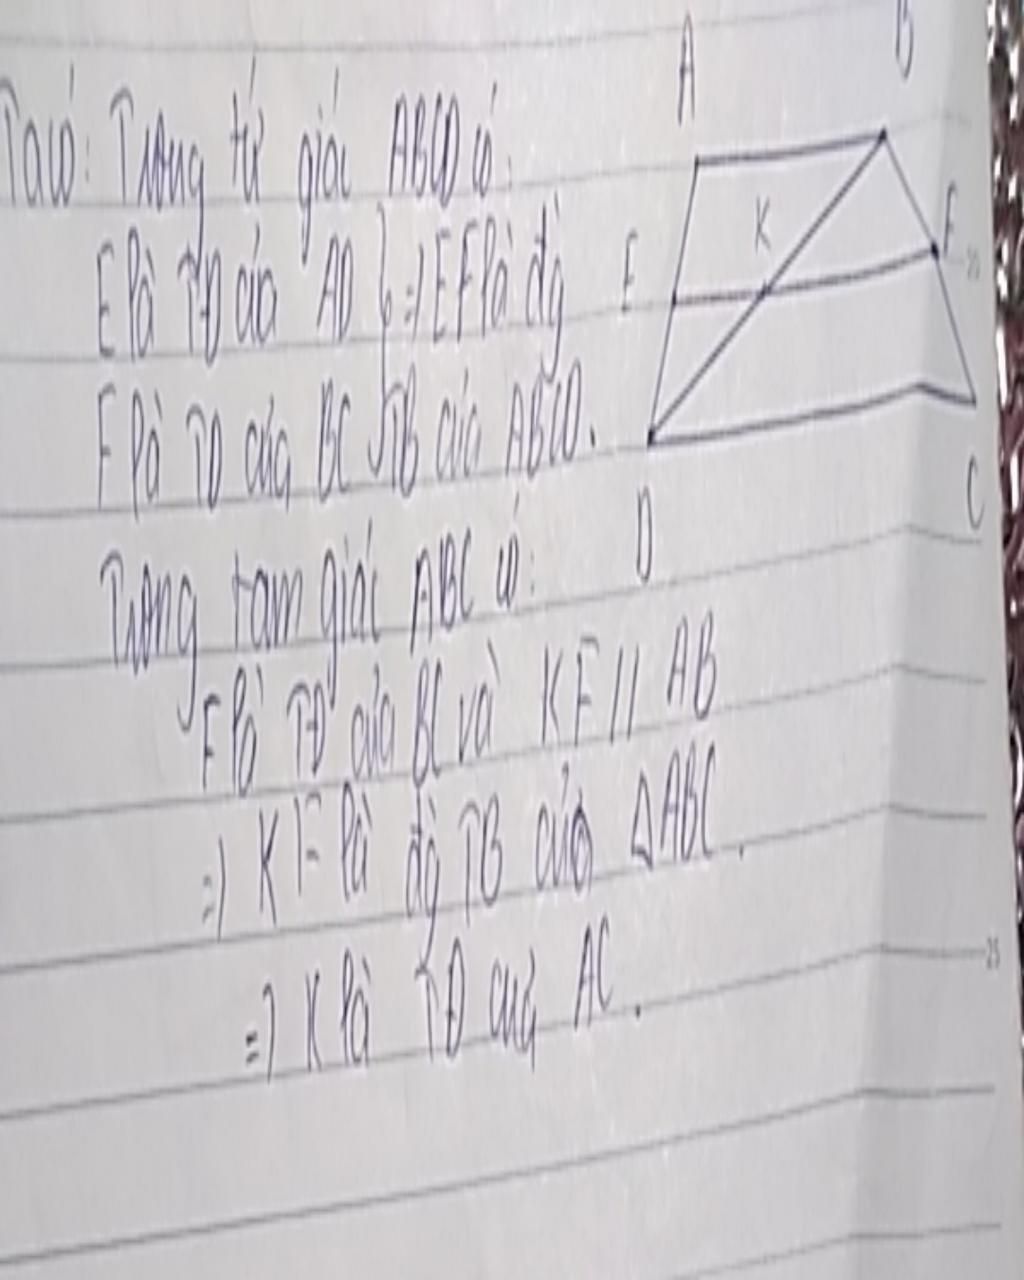 Ta có: Trong tứ giác ABCD có:
E là TĐ của AD } => EF là đg
F là TĐ của BC TB của ABCD.
Trong tam giác ABC có:
F là TĐ của BC và KF // AB
=> KF là đg TB của ΔABC.
=> K là TĐ của AC.
A
B
K
E
F
D
C
25